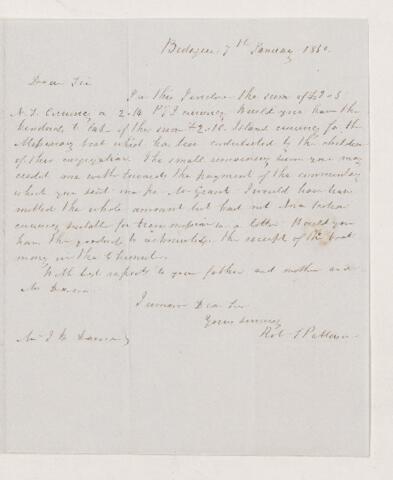 Bedeque 7th January 1860.
Dear Sir
In this I enclose the sum of £2.5
N.S. Currency or 2.14 P.E.I currency Would you have the
kindness to take of this sum £2.10 Island currency for the
Missionary boat which has been contributed by the children
of this congregation. The small remaining sum you may
credit me with towards the payment of the commentary
which you sent me per Mr Grant. I would have
the whole amount but had not Nova Scotia
currency suitable for transmission in a letter. Would you
have the goodness to acknowledge the receipt of the boat
money in the
With best respects to your father and mother and
Mr
I remain Dear Sir
Yours sincerely
Robt S Patterson
Mr J W Dawson